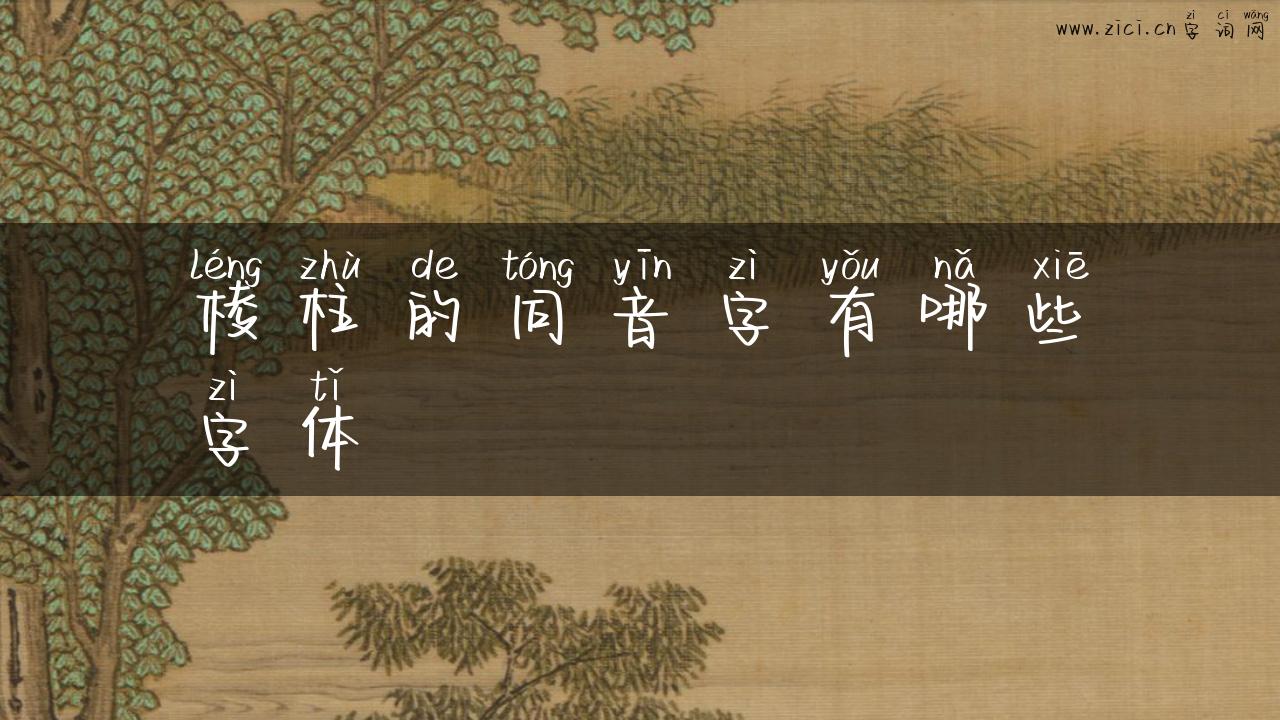 zì cí wǎng
www.zici.cn字词网
léng zhù de tóng yīn zì yǒu nǎ xiē
棱柱的同音字有哪些
zì tǐ
字体